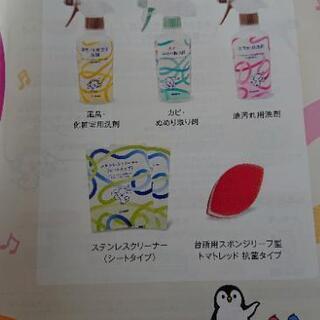 風呂・
化粧室用洗剤
カビ・
ぬめり取り剤
油汚れ用洗剤
ステンレスクリーナー
(シートタイプ)
台所用スポンジリーフ型
トマトレッド 抗菌タイプ